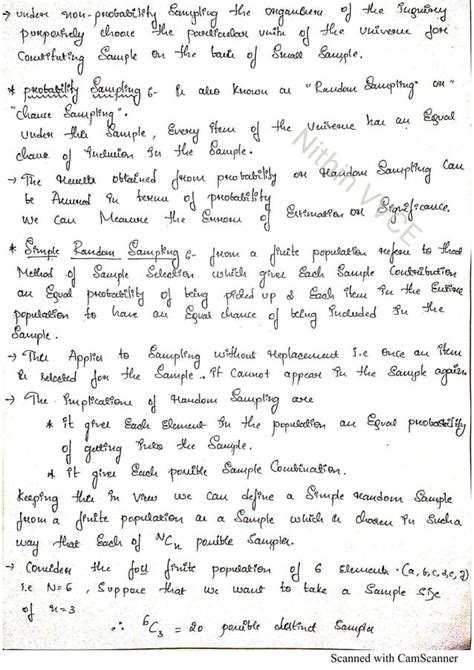 → under non-probability Sampling the organisers of the Inquiry
purposively choose the particular units of the Universe for
Constituting Sample on the basis of Small Sample.
* probability Sampling :- Is also known as "Random Sampling" or
"Chance Sampling".
Under this Sample, Every item of the Universe has an Equal
chance of inclusion in the Sample.
→ The results obtained from probability or random Sampling can
be Assured in terms of probability
We can Measure the Errors of Estimation or Significance.
* Simple Random Sampling :- from a finite population refers to that
Method of Sample Selection which gives Each Sample Combination
an Equal probability of being picked up & Each item in the Entire
population to have an Equal chance of being included in the
Sample.
→ This Applies to Sampling without replacement i.e once an item
is selected for the Sample.. it Cannot appear in the Sample again.
→ The implications of random Sampling are
* it gives Each Element in the population an Equal probability
of getting into the Sample.
* it gives Each possible Sample Combination.
Keeping this in View we can define a Simple random Sample
from a finite population as a Sample which is chosen in Such a
way that Each of NCn possible Samples.
→ Consider the foll finite population of 6 Elements (a, b, c, d, e, f)
i.e N=6, Suppose that we want to take a Sample size
of n=3
∴ 6C3 = 20 possible distinct Samples
Nithin VVCE
Scanned with CamScanner